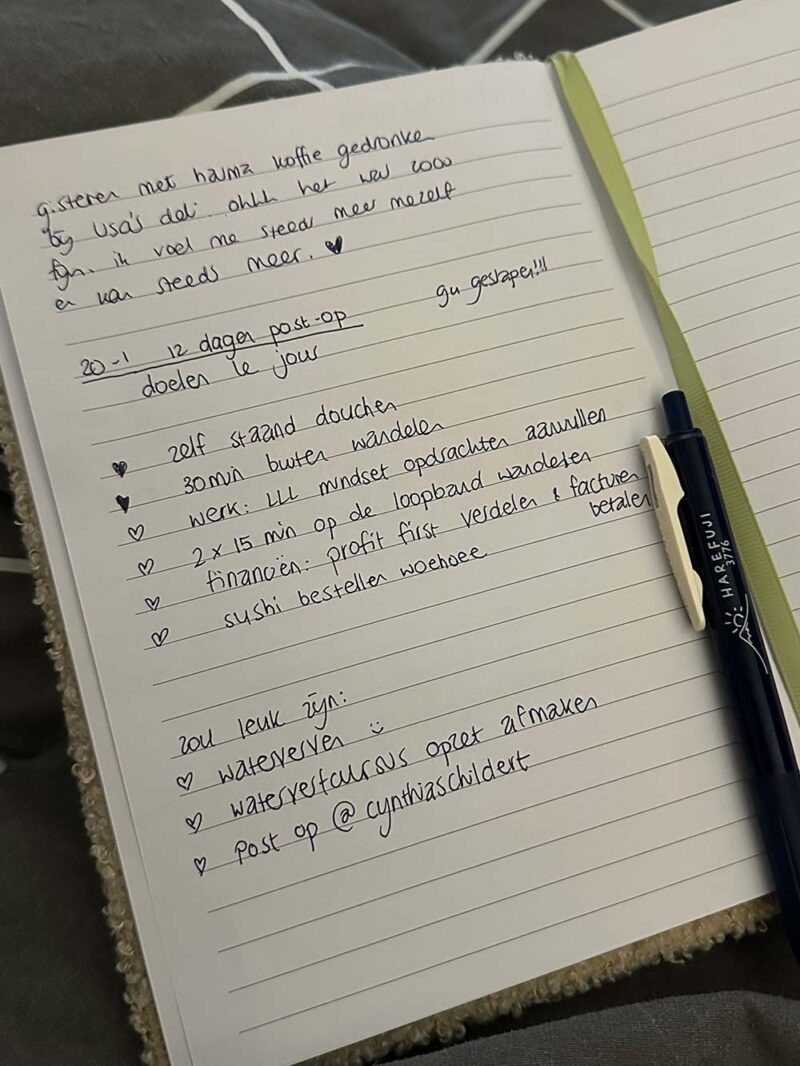 gisteren met haima koffie gedronke
bij Lisa's deli. ohhh het was zooo
fijn. ik voel me steeds meer mezelf
en kan steeds meer. ♥
20-1 12 dagen post-op
gu geslapen!!!
doelen le jour
♥ zelf staand douchen
♥ 30 min buiten wandelen
♡ werk: LLL mindset opdrachten aanvullen
♡ 2 x 15 min op de loopband wandelen
♡ financiën: profit first verdelen & facturen
betalen
♡ sushi bestellen woehoee
zou leuk zijn:
♡ waterverven :)
♡ waterverfcursus opzet afmaken
♡ post op @cynthiaschildert
HAREFUJI
3776